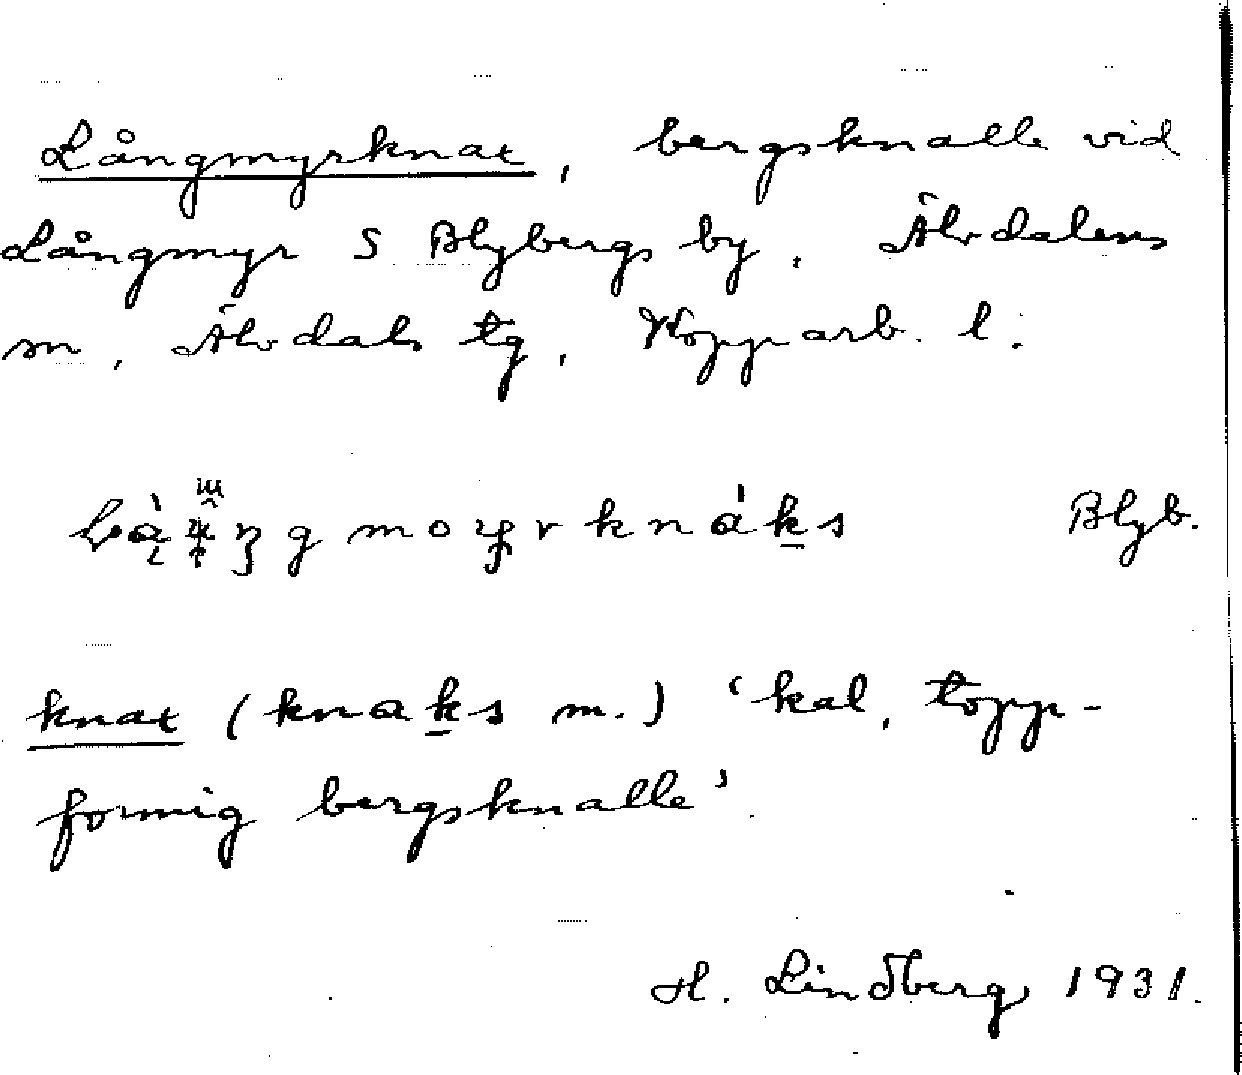 Långmyrknat, bergsknalle vid
Långmyr S Blybergs by. Älvdalens
sn, Älvdals tg, Kopparb. l.
Blyb.
knat (knaks m.) 'kal, topp-
formig bergsknalle'.
H. Lindberg 1931.